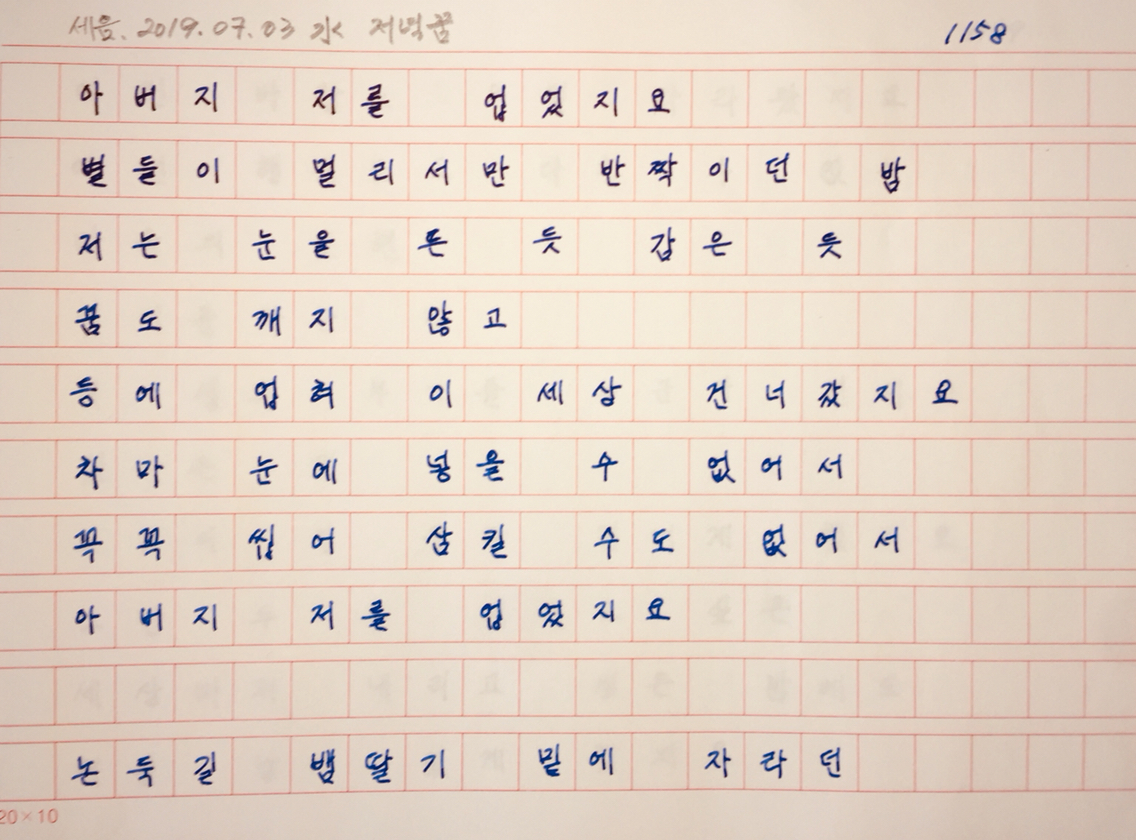 세음. 2019.07.03 水 저녁꿈
1158
아버지 저를 업었지요
별들이 멀리서만 반짝이던 밤
저는 눈을 뜬 듯 감은 듯
꿈도 깨지 않고
등에 업혀 이 세상 건너갔지요
차마 눈에 넣을 수 없어서
꼭꼭 씹어 삼킬 수도 없어서
아버지 저를 업었지요
논둑길 뱀딸기 밑에 자라던
20×10